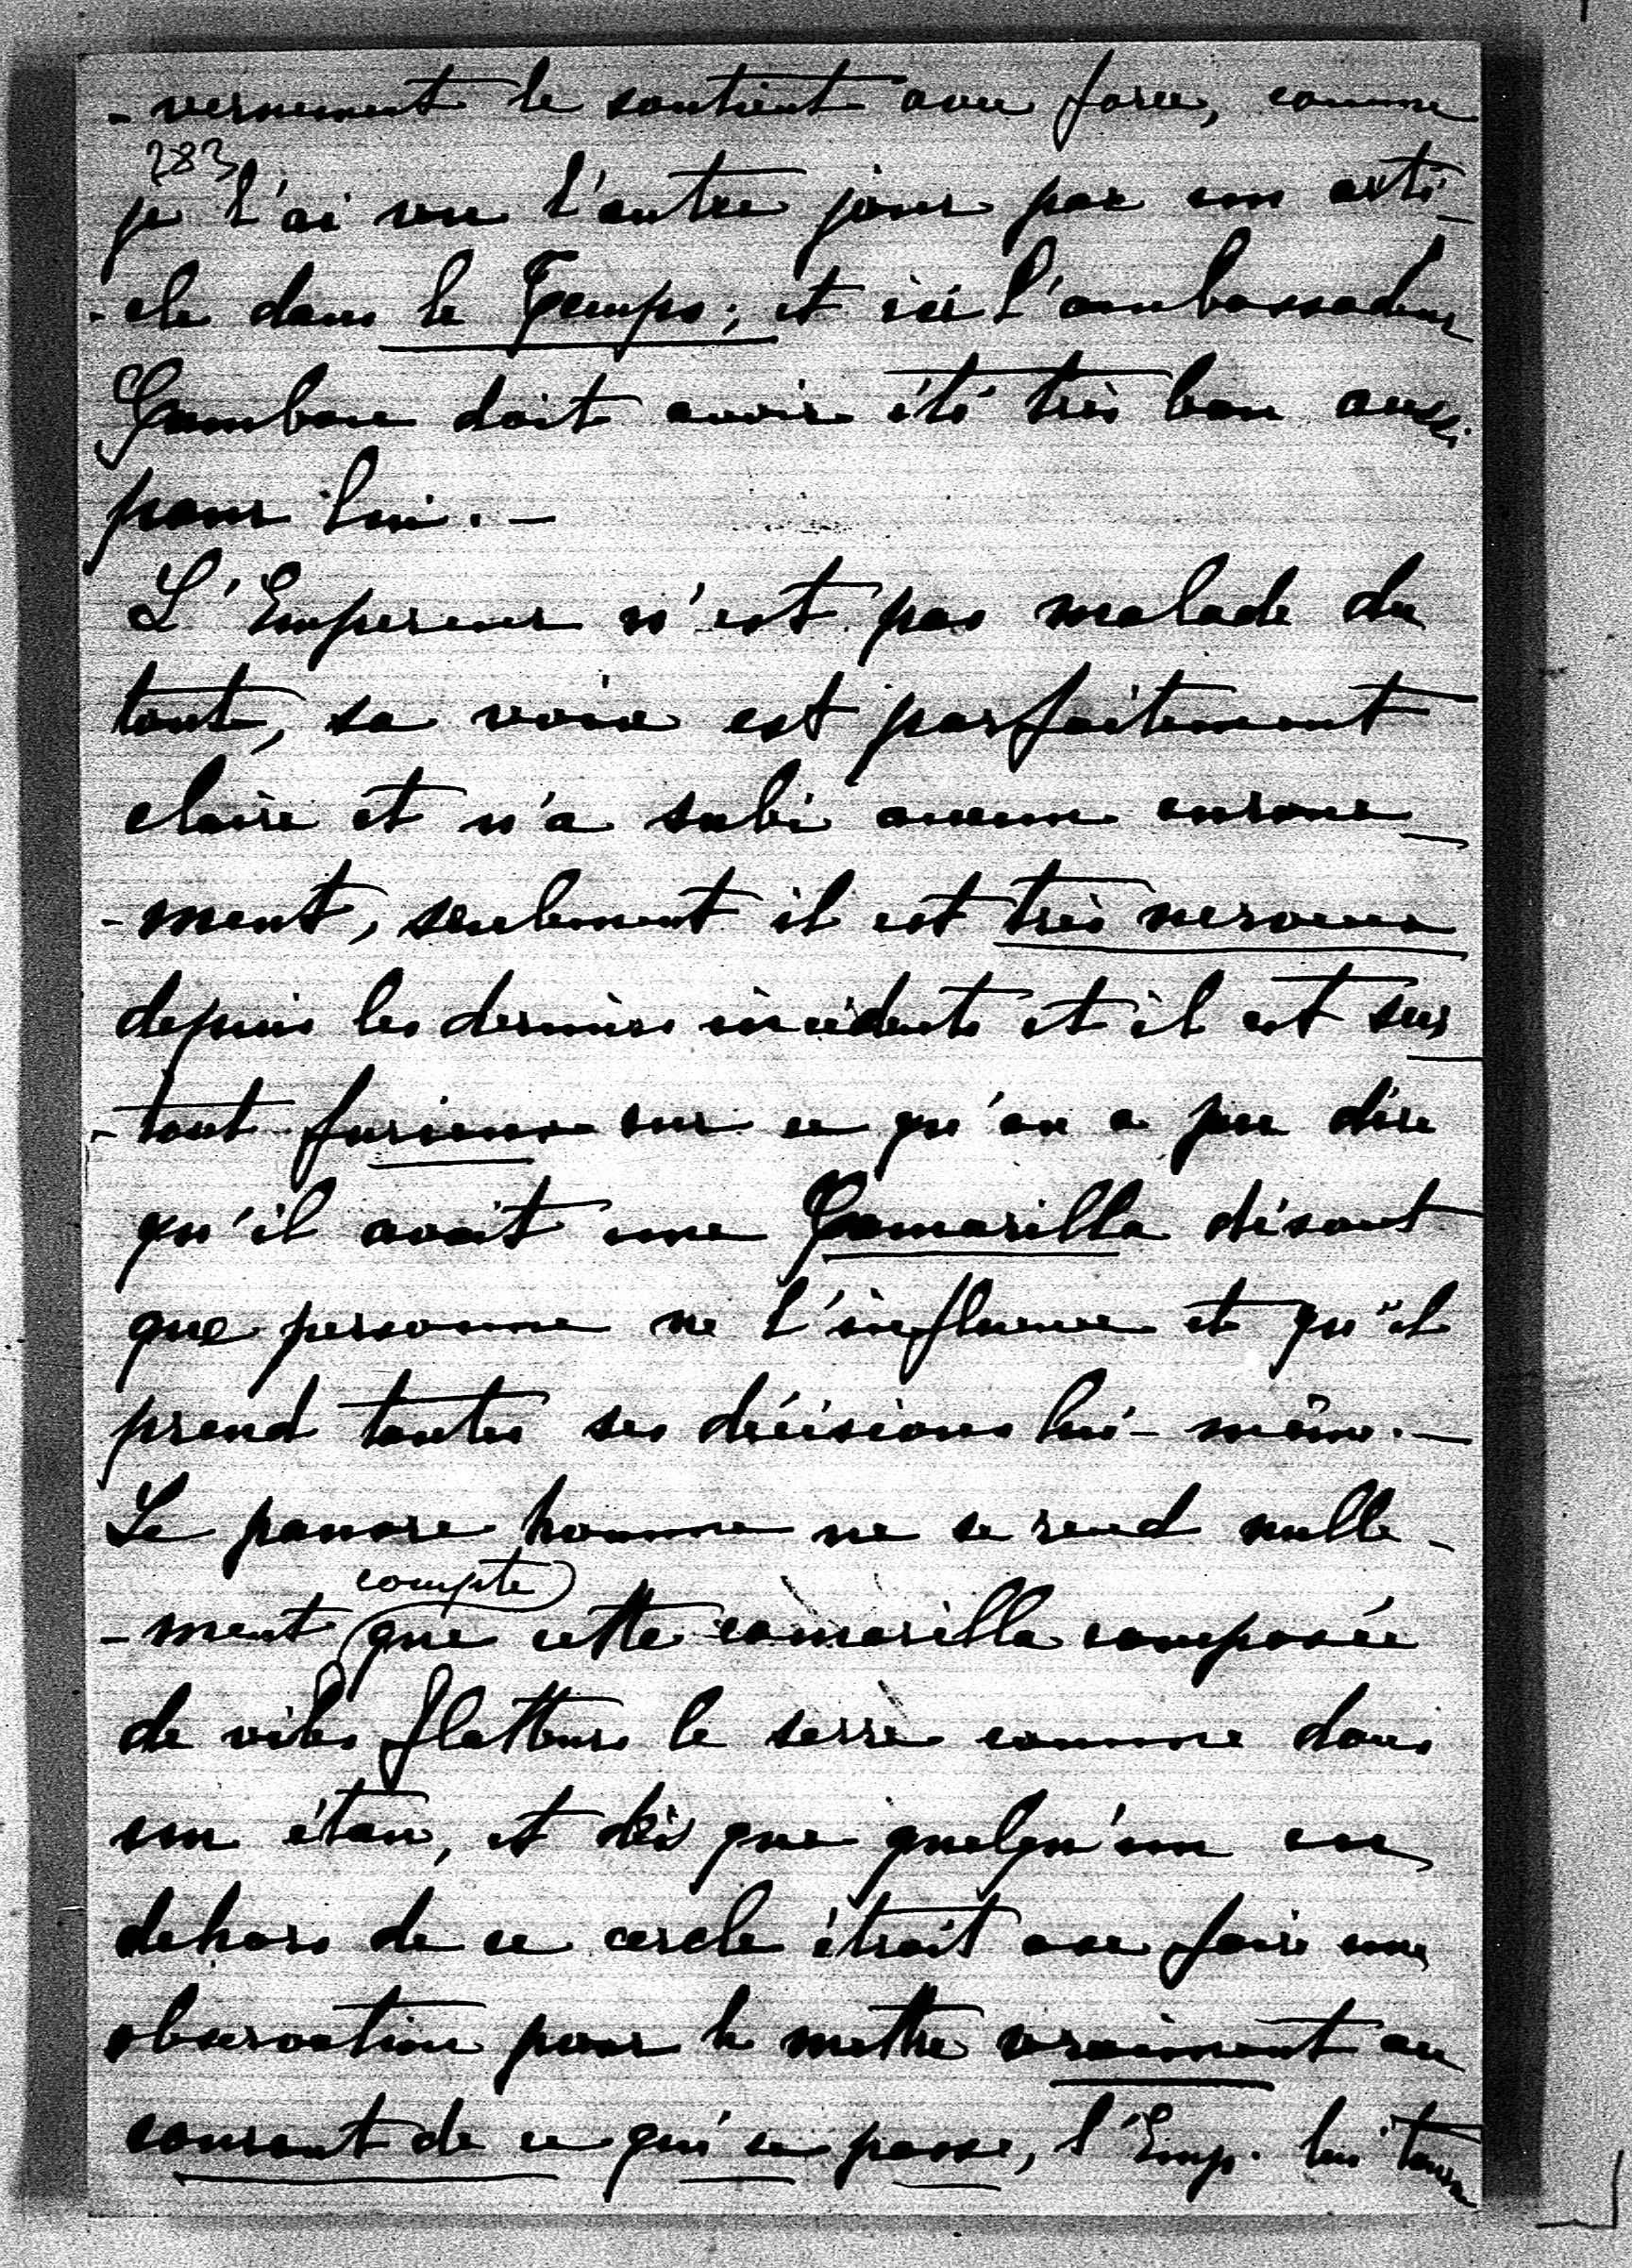 -vernement le soutient avec force, comme
283
je l'ai vu l'autre jour par un arti-
-cle dans le Temps; et ici l'ambassadeur
Cambon doit avoir été très bon aussi
pour lui. –
L'Empereur n'est pas malade du
tout, sa voix est parfaitement
claire et n'a subi aucun enroue-
-ment, seulement il est très nerveux
depuis les derniers incidents et il est sur-
-tout furieux sur ce qu'on a pu dire
qu'il avait une Camarilla disant
que personne ne l'influence et qu'il
prend toutes ses décisions lui-même. –
Le pauvre homme ne se rend nulle-
compte
-ment que cette camarilla composée
de viles flatteurs le serre comme dans
un étau, et dès que quelqu'un en
dehors de ce cercle étroit ose faire une
observation pour le mettre vraiment au
courant de ce qui se passe, l'Emp. lui tourne